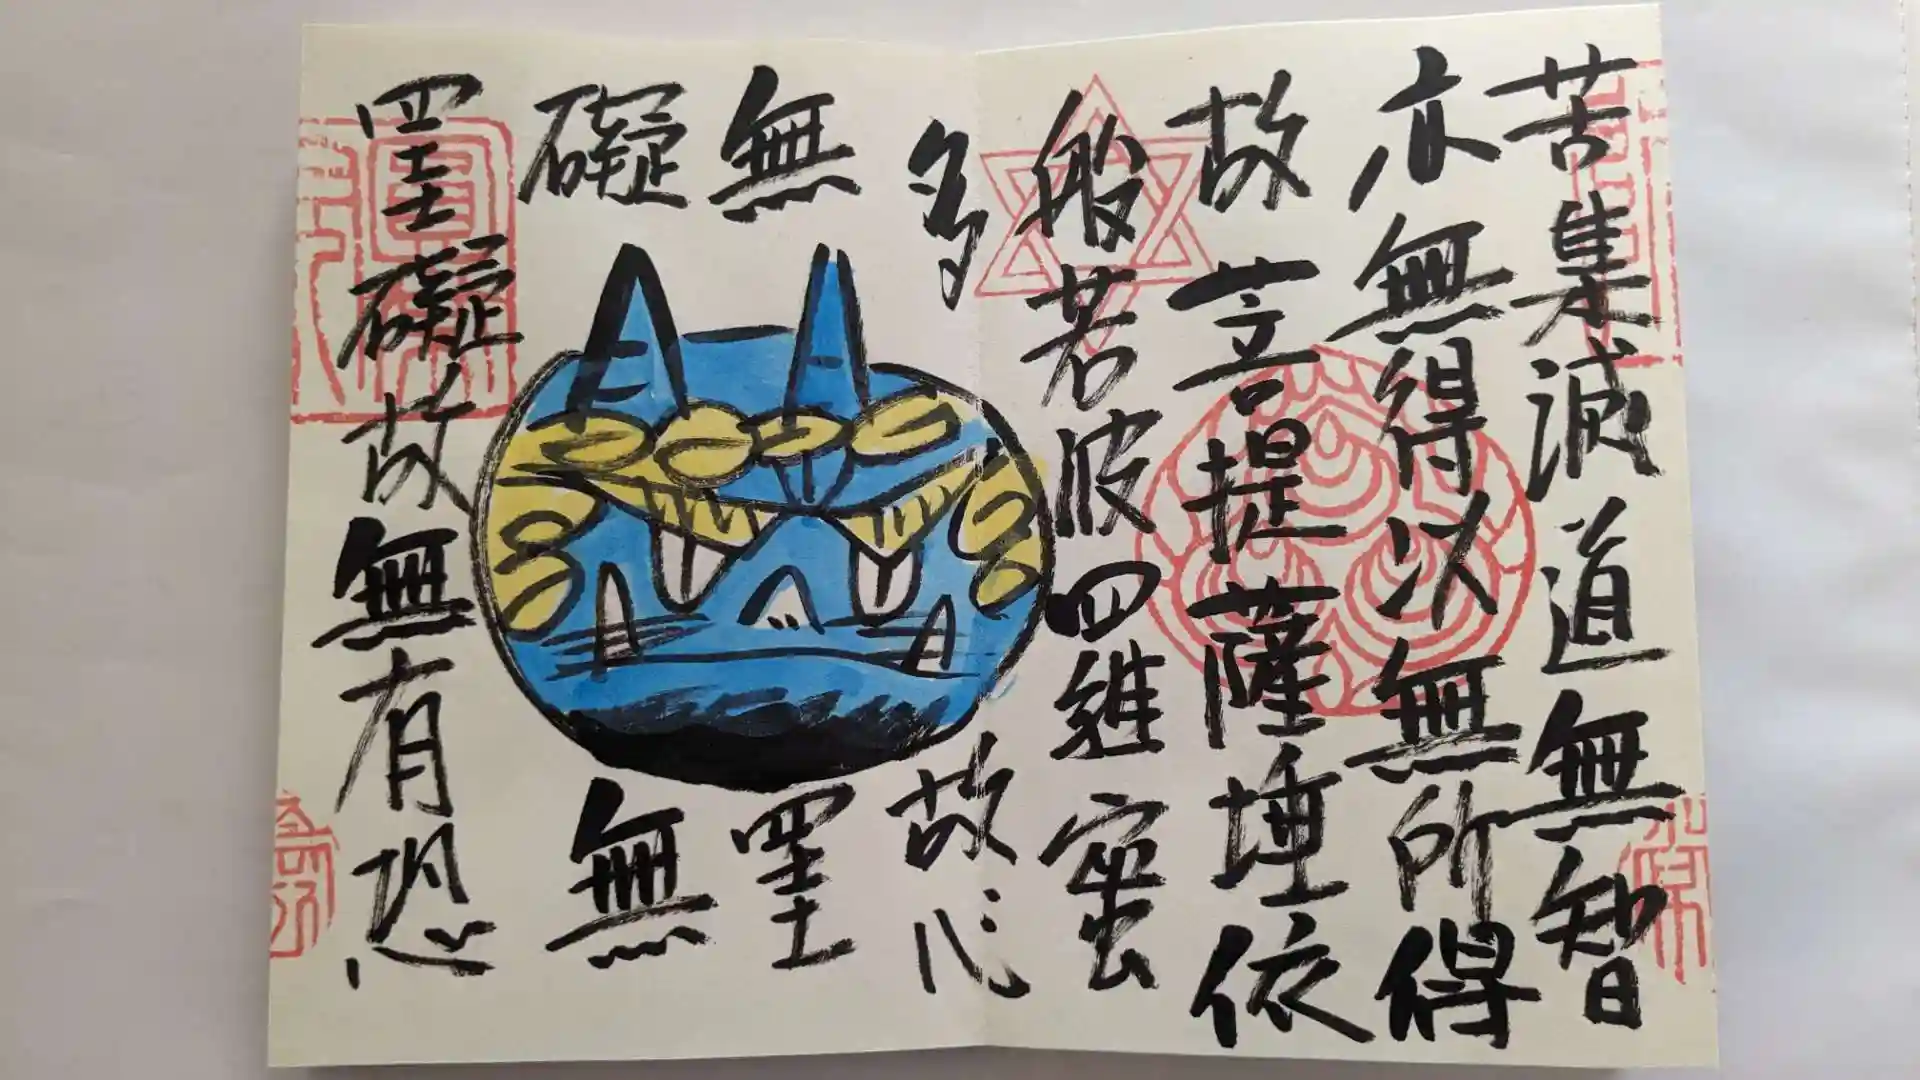 苦集滅道無智
亦無得以無所得
故菩提薩埵依
般若波羅蜜
多故心
無罣
礙無
罣礙故無有恐